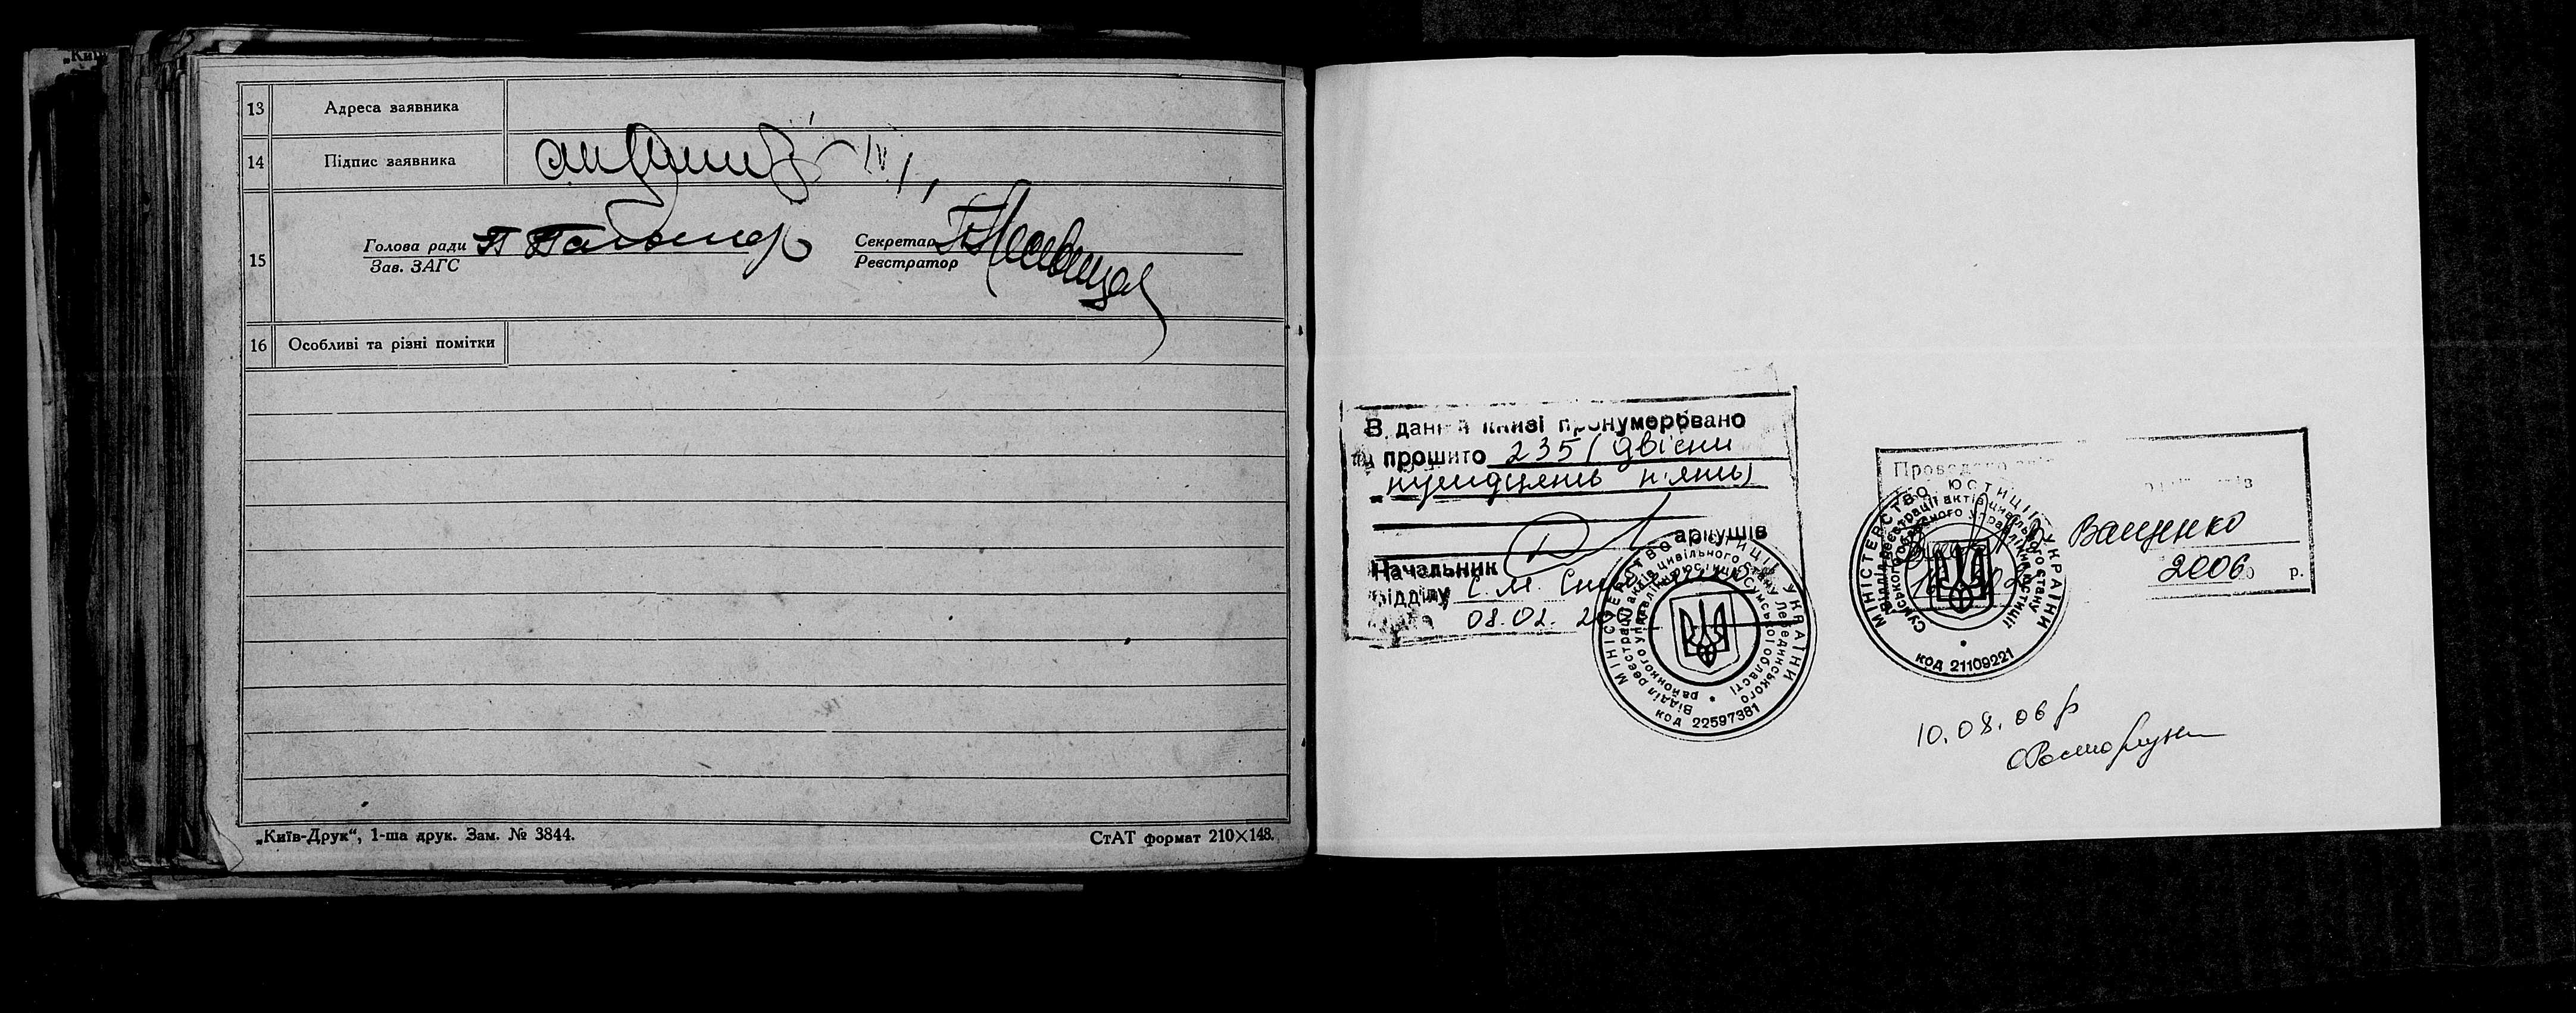 13 Адреса заявника
14 Підпис заявника
15 Голова ради Секретар
Зав. ЗАГС Реєстратор
16 Особливі та різні помітки
„Київ-Друк“, 1-ша друк. Зам. № 3844.
СтАТ формат 210×148.
В даній книзі пронумеровано
та прошито 235 (двісті
тридцять п'ять)
аркушів
Начальник
відділу С.М.
08.02.
МІНІСТЕРСТВО ЮСТИЦІЇ УКРАЇНИ
Відділ реєстрації актів цивільного стану Лебединського
районного управління юстиції Сумської області
код 22597381
Проведено
МІНІСТЕРСТВО ЮСТИЦІЇ УКРАЇНИ
Відділ реєстрації актів цивільного стану
Сумського обласного управління юстиції
код 21109221
Ващенко
2006 р.
10.08.06 р